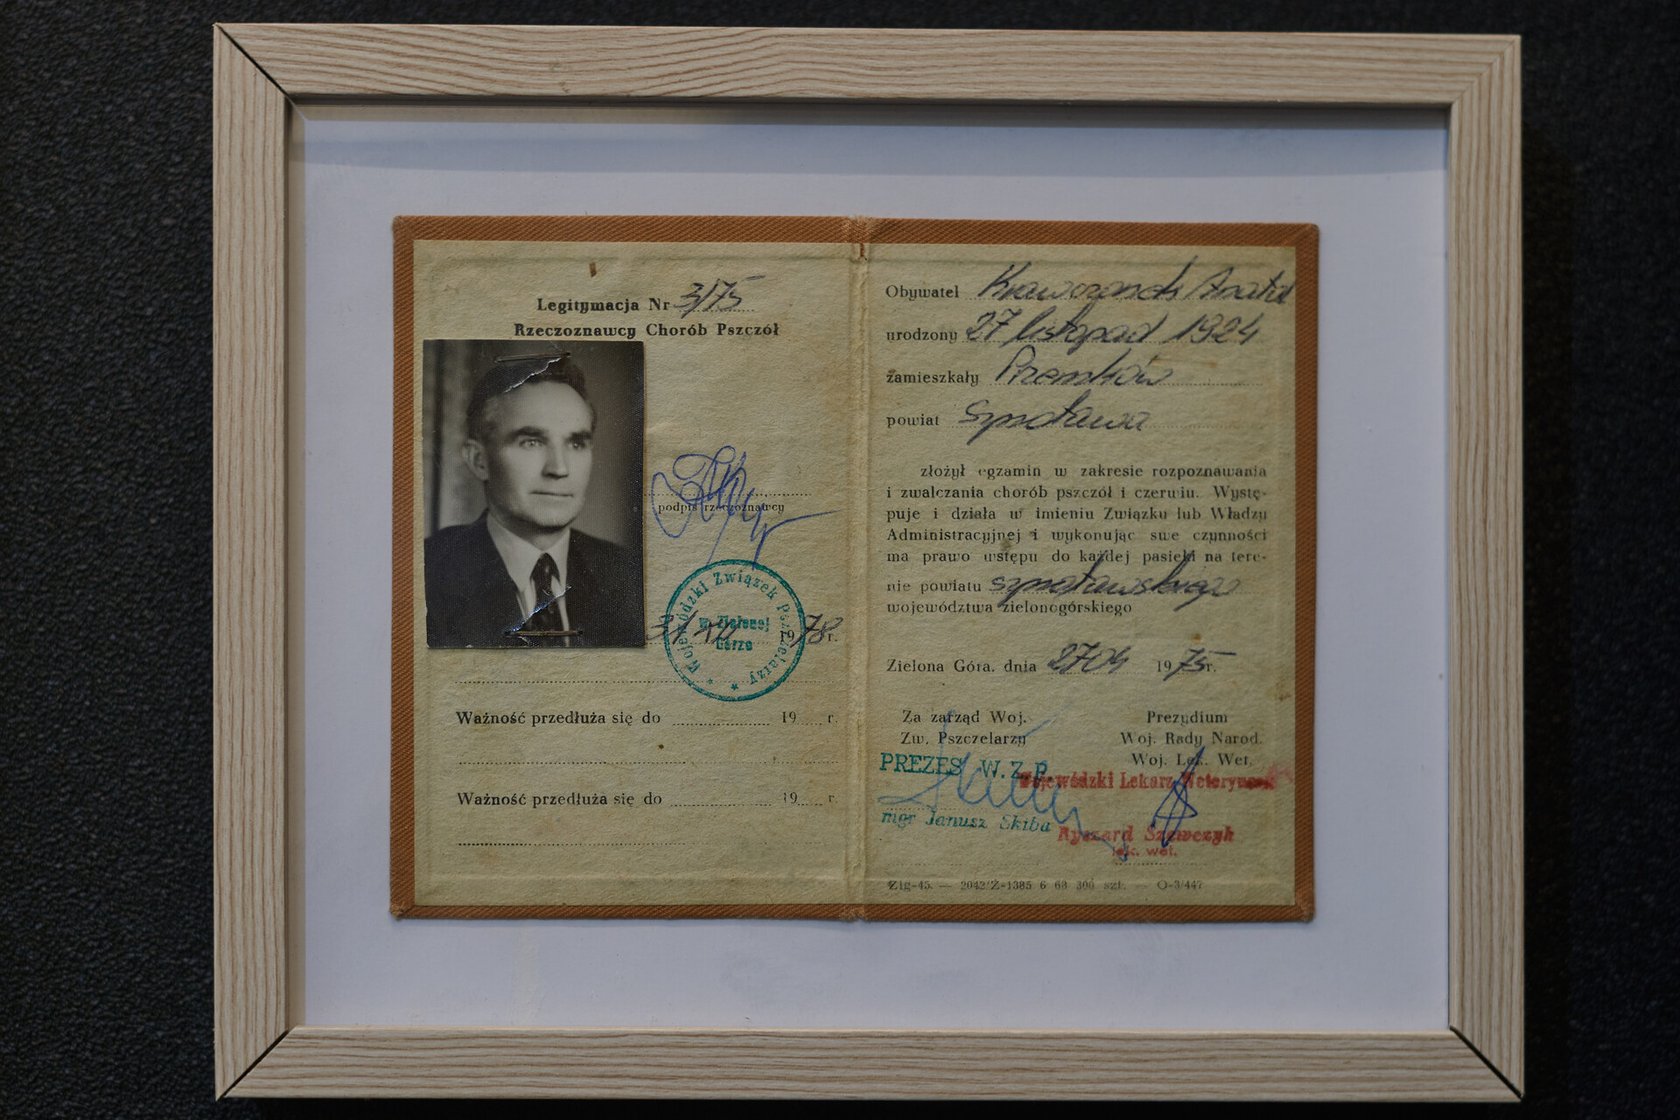 Legitymacja Nr 3/75
Rzeczoznawcy Chorób Pszczół
podpis rzeczoznawcy
Wojewódzki Związek Pszczelarzy
w Zielonej
Górze
31 XII 1978 r.
Ważność przedłuża się do 19 r.
Ważność przedłuża się do 19 r.
Obywatel
urodzony 27 listopad 1924
zamieszkały Przemków
powiat Szprotawa
złożył egzamin w zakresie rozpoznawania
i zwalczania chorób pszczół i czerwiu. Wystę-
puje i działa w imieniu Związku lub Władzy
Administracyjnej i wykonując swe czynności
ma prawo wstępu do każdej pasieki na tere-
nie powiatu szprotawskiego
województwa zielonogórskiego
Zielona Góra, dnia 27 04 1975 r.
Za zarząd Woj.
Zw. Pszczelarzy
Prezydium
Woj. Rady Narod.
Woj. Lek. Wet.
PREZES W.Z.P.
Wojewódzki Lekarz Weterynarii
mgr Janusz Skiba
Ryszard Szewczyk
lek. wet.
Zig-45. — 2042/Z-1385 6 68 300 szt. — O-3/447